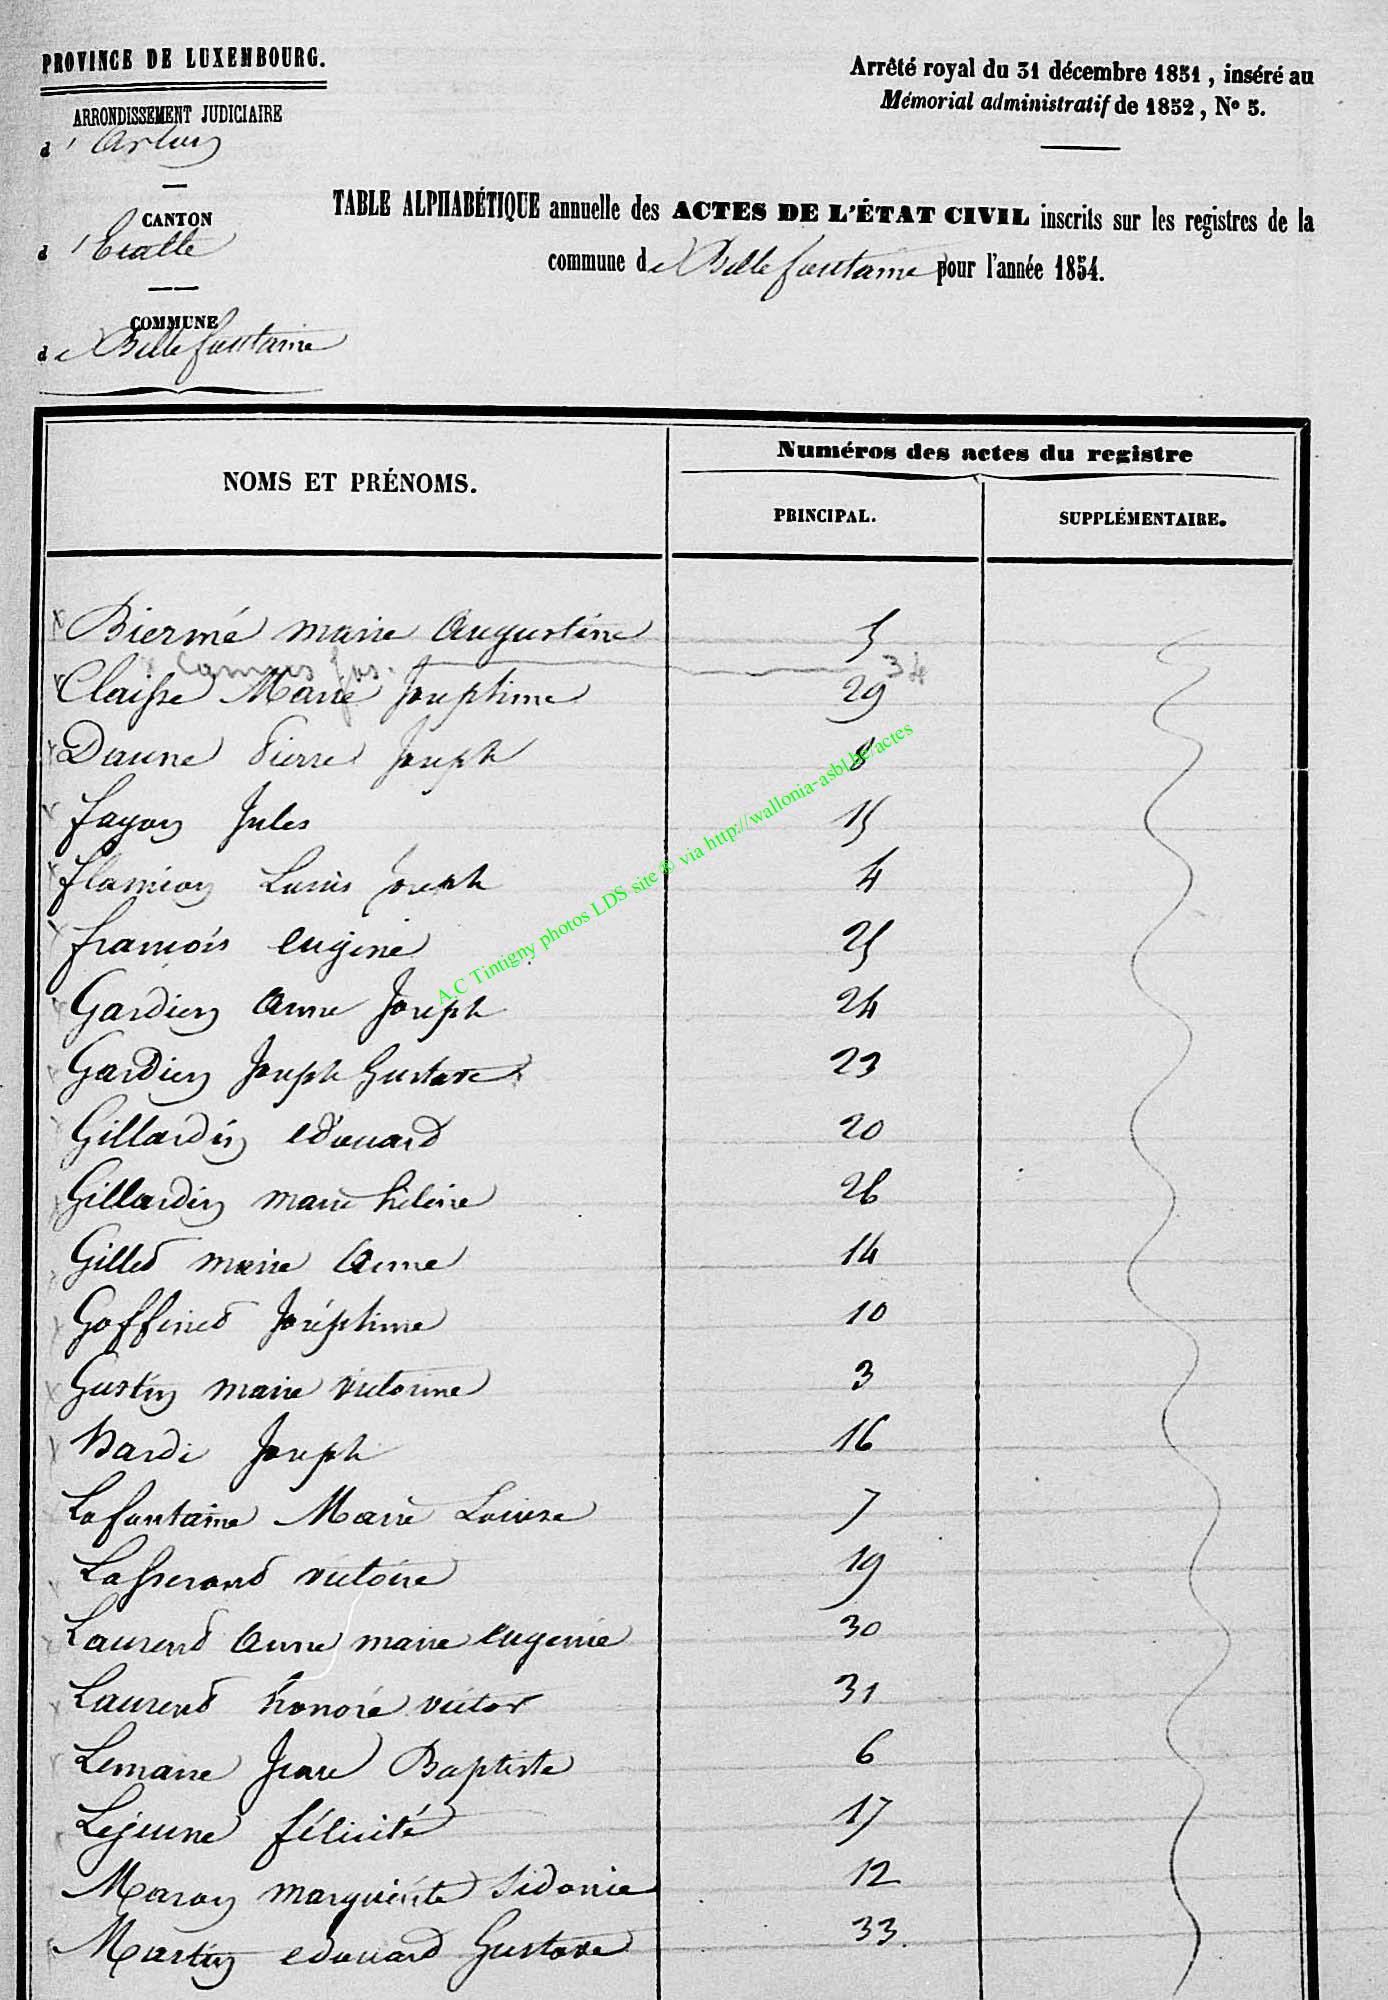 PROVINCE DE LUXEMBOURG.
ARRONDISSEMENT JUDICIAIRE
d'Arlon
CANTON
d'Etalle
COMMUNE
de Bellefontaine
Arrêté royal du 31 décembre 1851, inséré au
Mémorial administratif de 1852, No 5.
TABLE ALPHABÉTIQUE annuelle des ACTES DE L'ÉTAT CIVIL inscrits sur les registres de la
commune de Bellefontaine pour l'année 1854.
NOMS ET PRÉNOMS.
Numéros des actes du registre
PRINCIPAL.
SUPPLÉMENTAIRE.
Biermé marie Augustine 5
Jos. 34
Claisse Marie Joséphine 29
Daune Pierre Joseph 8
fayon Jules 15
flamion Louis Joseph 4
françois eugène 25
Gardien Anne Joseph 24
Gardien Joseph Gustave 23
Gillardin edouard 20
Gillardin marie hélène 26
Gilled marie Anne 14
Goffined Joséphine 10
Gustin marie victorine 3
Hardi Joseph 16
Lafontaine Marie Louise 7
Lasserand victoire 19
Laurend Anne marie eugenie 30
Laurend honoré victor 31
Lemaire Jean Baptiste 6
Lejeune félicité 17
Maron marguerite Sidonie 12
Martin edouard Gustave 33.
A.C Tintigny photos LDS site ® via http://wallonia-asbl.be/actes